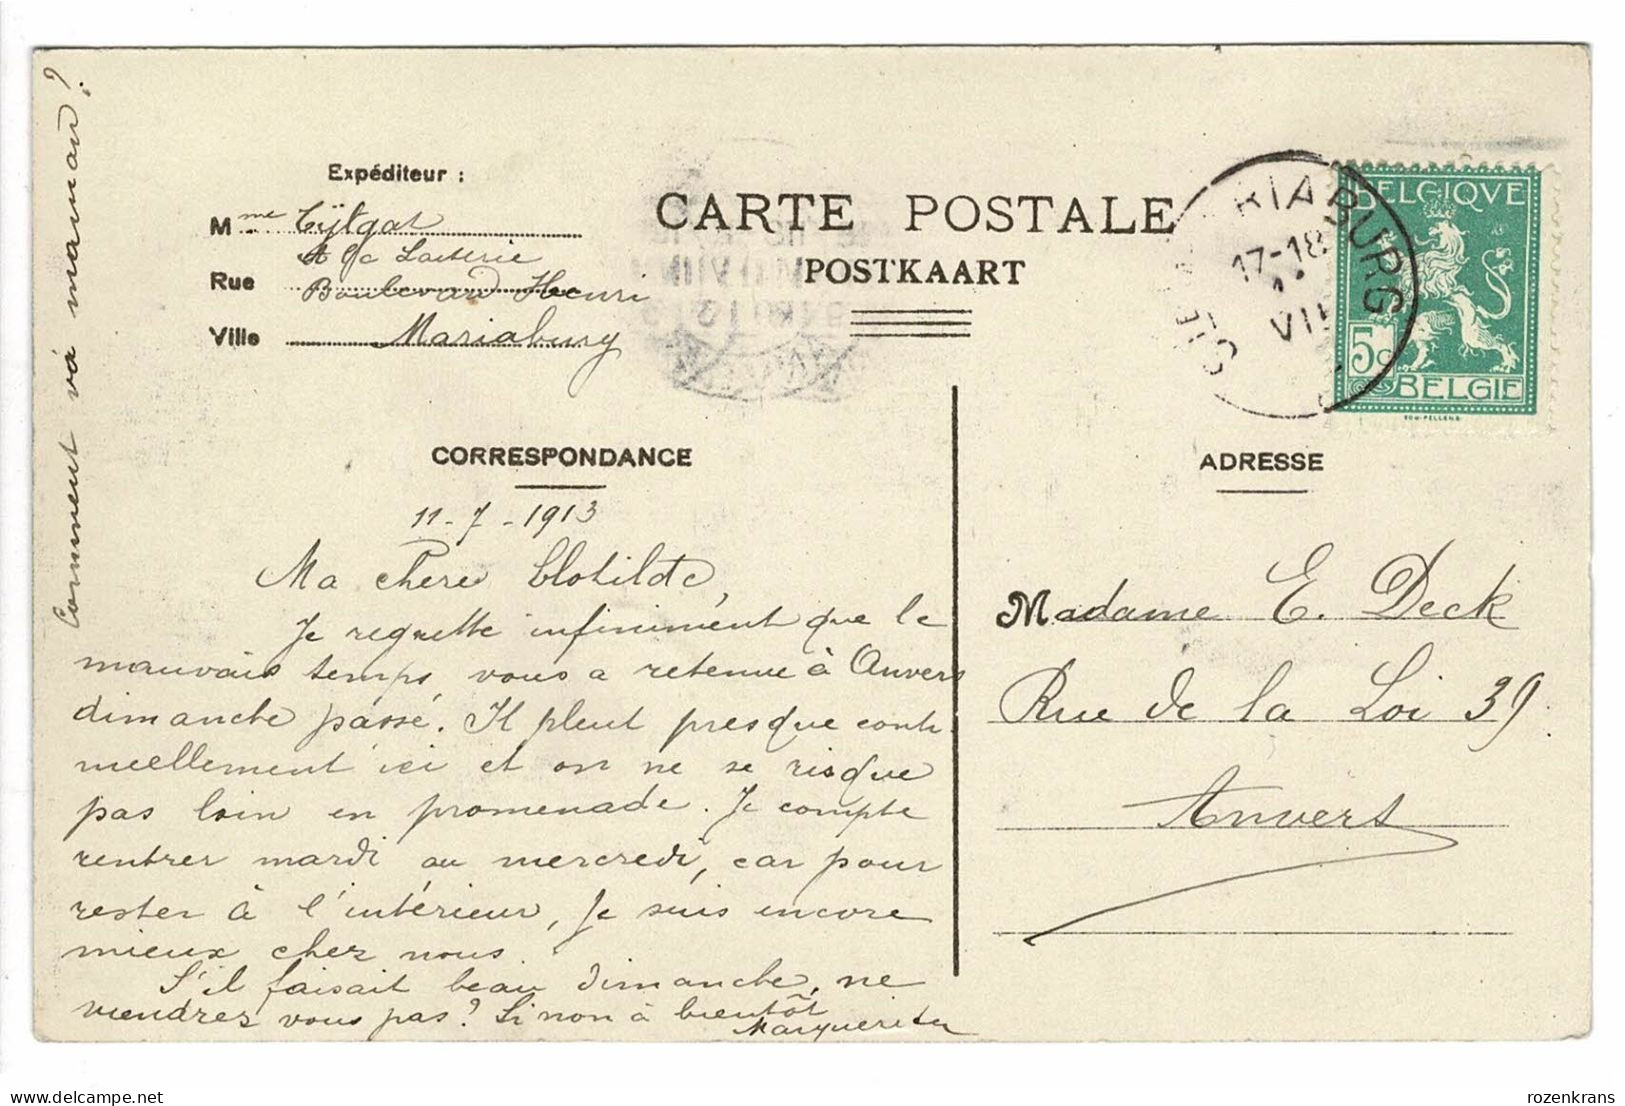 Comment va maman?
Expéditeur :
Mme Cÿtgat
A la Laiterie
Rue Boulevard Henri
Ville Mariaburg
CARTE POSTALE
POSTKAART
BURG
17-18
VII
BELGIQVE
5c
BELGIE
CORRESPONDANCE
11-7-1913
Ma chère Clotilde,
Je regrette infiniment que le
mauvais temps vous a retenue à Anvers
dimanche passé. Il pleut presque conti
nuellement ici et on ne se risque
pas loin en promenade. Je compte
rentrer mardi ou mercredi, car pour
rester à l'intérieur, je suis encore
mieux chez nous.
S'il faisait beau dimanche, ne
viendrez vous pas? Si non à bientôt
Marguerite
ADRESSE
Madame E. Deck
Rue de la Loi 39.
Anvers
delcampe.net
rozenkrans